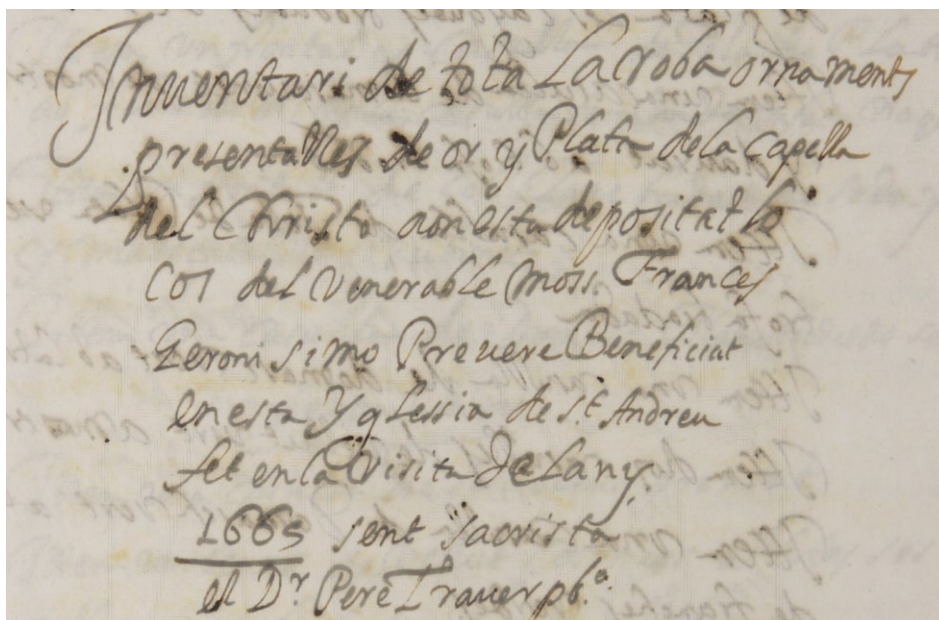 Inventari de tota La roba ornaments
presentalles de or y Plata de la Capella
del Christo aon esta depositat lo
Cos del Venerable Moss. Frances
Geroni simo Prevere Beneficiat
en esta Yglessia de st. Andreu
fet en la Visita de Lany
1665 sent sacrista
el Dr. Pere Traver pbe.